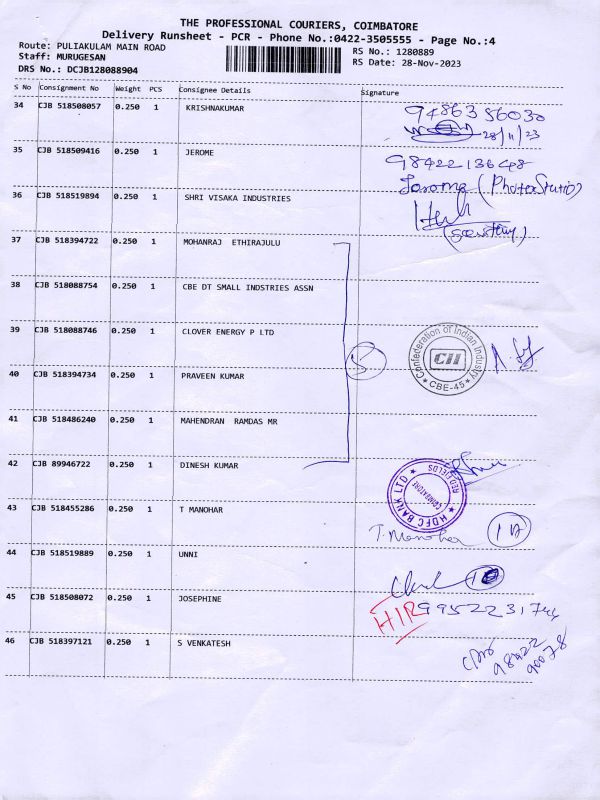 THE PROFESSIONAL COURIERS, COIMBATORE
Delivery Runsheet - PCR - Phone No.:0422-3505555 - Page No.:4
Route: PULIAKULAM MAIN ROAD
RS No.: 1280889
Staff: MURUGESAN
RS Date: 28-Nov-2023
DRS No.: DCJB128088904
S No Consignment No Weight PCS Consignee Details Signature
34 CJB 518508057 0.250 1 KRISHNAKUMAR 9486356030
28/11/23
35 CJB 518509416 0.250 1 JEROME 9842213648
(Photo Studio)
36 CJB 518519894 0.250 1 SHRI VISAKA INDUSTRIES
(Security)
37 CJB 518394722 0.250 1 MOHANRAJ ETHIRAJULU
38 CJB 518088754 0.250 1 CBE DT SMALL INDSTRIES ASSN
39 CJB 518088746 0.250 1 CLOVER ENERGY P LTD
5
Confederation of Indian Industry
CII
CBE-45
40 CJB 518394734 0.250 1 PRAVEEN KUMAR
41 CJB 518486240 0.250 1 MAHENDRAN RAMDAS MR
42 CJB 89946722 0.250 1 DINESH KUMAR
HDFC BANK LTD
RED FIELDS
COIMBATORE
43 CJB 518455286 0.250 1 T MANOHAR T. Manohar
44 CJB 518519889 0.250 1 UNNI
45 CJB 518508072 0.250 1 JOSEPHINE HIR
46 CJB 518397121 0.250 1 S VENKATESH